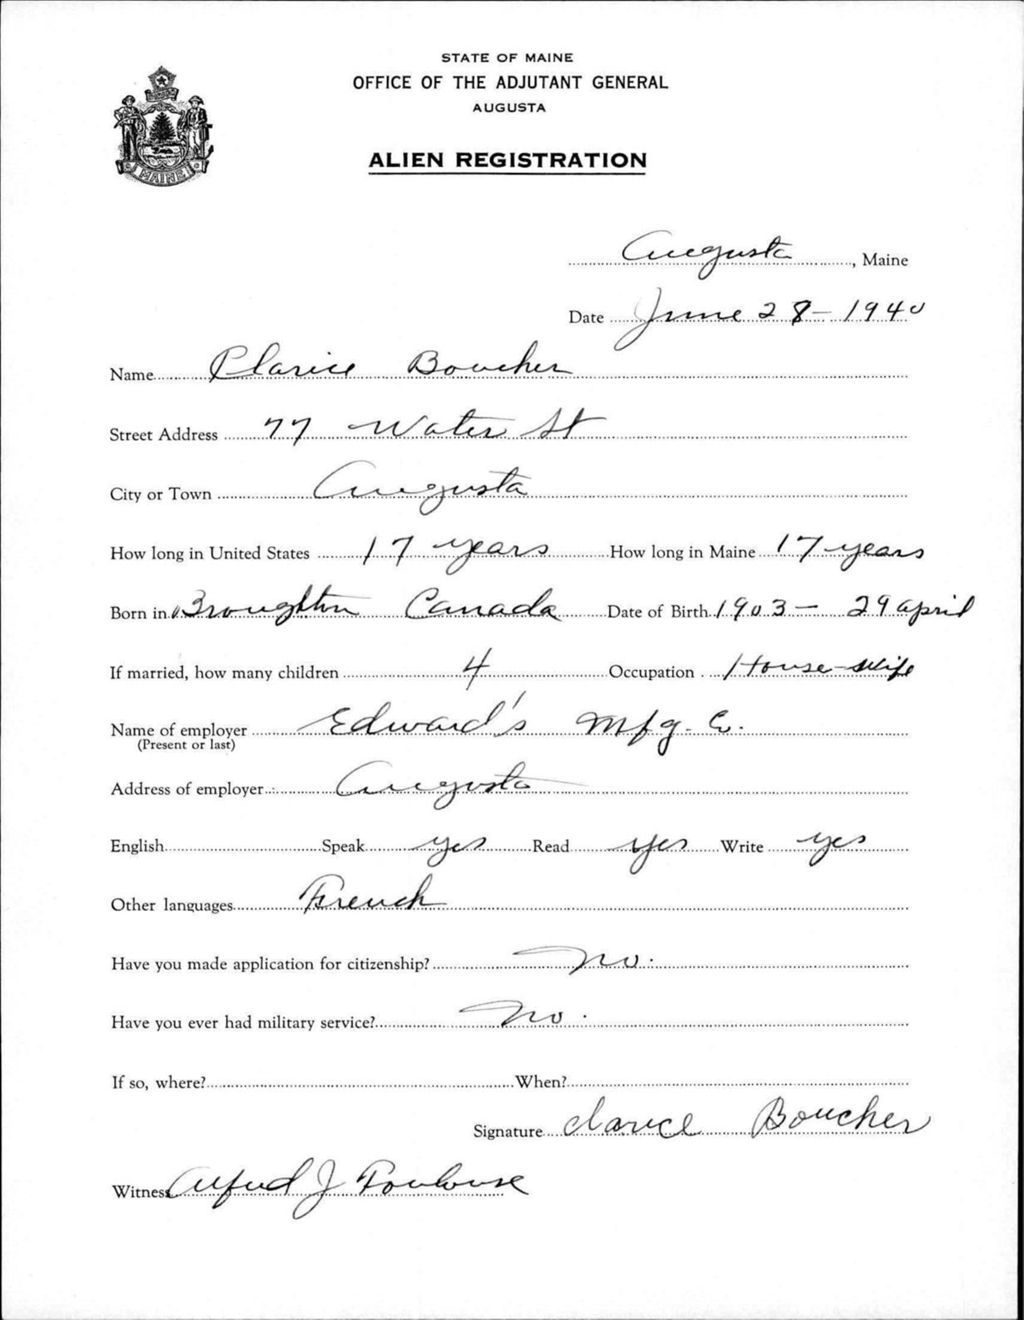 STATE OF MAINE
OFFICE OF THE ADJUTANT GENERAL
AUGUSTA
ALIEN REGISTRATION
MAINE
Augusta, Maine
Date June 28-1940
Name Clarice Boucher
Street Address 77 Water St
City or Town Augusta
How long in United States 17 years How long in Maine 17 years
Born in Broughton Canada Date of Birth 1903 - 29 april
If married, how many children 4 Occupation House-wife
Name of employer Edward's Mfg. Co.
(Present or last)
Address of employer Augusta
English Speak yes Read yes Write yes
Other languages French
Have you made application for citizenship? No.
Have you ever had military service? No.
If so, where? When?
Signature Clarice Boucher
Witness Alfred J Toulouse